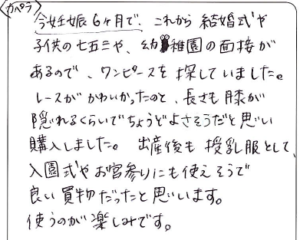 カペラ
今妊娠6ヶ月で、これから結婚式や
子供の七五三や、幼稚園の面接が
あるので、ワンピースを探していました。
レースがかわいかったのと、長さも膝が
隠れるくらいでちょうどよさそうだと思い
購入しました。出産後も授乳服として、
入園式やお宮参りにも使えそうで
良い買物だったと思います。
使うのが楽しみです。